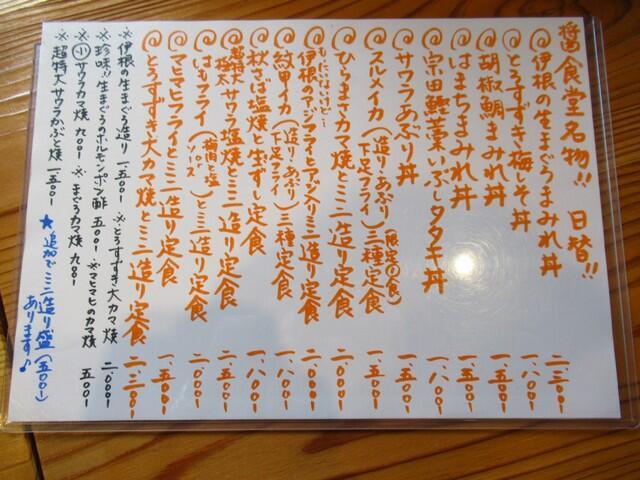 醤食堂名物!! 日替!!
◎伊根の生まぐろまみれ丼 二、三〇〇-
◎とろすずき梅しそ丼 一、八〇〇-
◎胡椒鯛まみれ丼 一、五〇〇-
◎はまちまみれ丼 一、五〇〇-
◎宗田鰹藁いぶしタタキ丼 一、八〇〇-
◎サワラあぶり丼 一、五〇〇-
◎スルメイカ(造り・あぶり 下足フライ)三種定食 一、五〇〇-
◎ひらまさカマ焼とミニ造り定食 二、〇〇〇-
もったいないけど…
◎伊根のアジフライとアジ入りミニ造り定食 二、〇〇〇-
◎紋甲イカ(造り・あぶり 下足フライ)三種定食 一、八〇〇-
◎秋さば塩焼と生ずし定食 一、八〇〇-
◎超特大極太サワラ塩焼とミニ造り定食 二、五〇〇-
◎はもフライ(梅肉と塩 ソース)とミニ造り定食 二、〇〇〇-
◎マヒマヒフライとミニ造り定食 一、五〇〇-
◎とろすずき大カマ焼とミニ造り定食 二、三〇〇-
※伊根の生まぐろ造り 一、五〇〇- ※とろすずき大カマ焼 二、〇〇〇-
※珍味!!生まぐろのホルモンポン酢 五〇〇- ※マヒマヒのカマ焼 五〇〇-
※小サワラカマ焼 九〇〇- ※まぐろカマ焼 九〇〇-
※超特大サワラかぶと焼 一、五〇〇-
★追加でミニ造り盛(五〇〇-)
あります♪